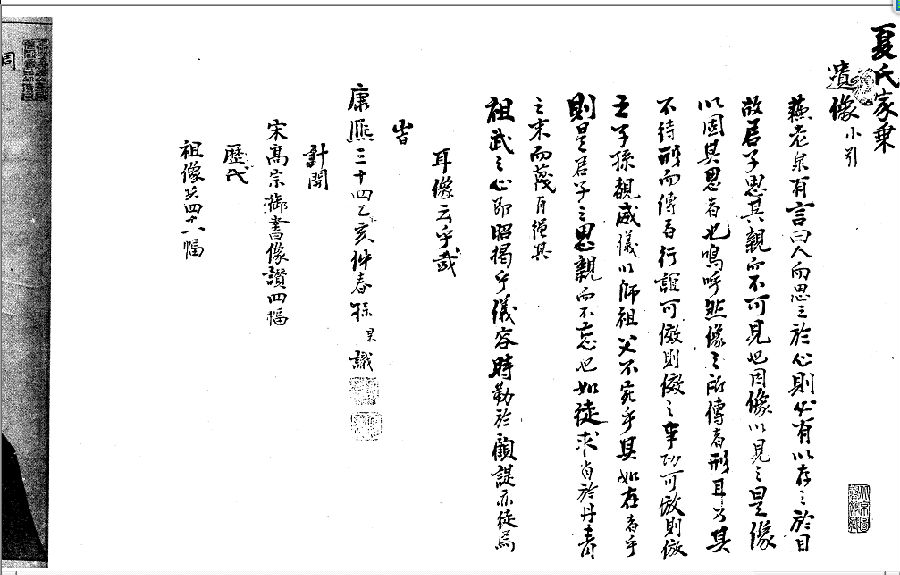 夏氏家乗
遺像小引
蘇老泉有言曰人而思之於心則必有以存之於目
故君子思其親而不可見也因像以見之是像
以固其思者也嗚呼然像之所傳者刑耳乃其
不待刑而傳者行誼可儆則儆之事功可倣則倣
之子孫覩威儀以師祖父不宛乎其如在者乎
則是君子之思親而不忘也如徒求肖於丹青
之末而
祖武之心即昭揭乎儀容時勒於顧諟亦徒為
耳像云乎哉
旹
康熙三十四乙亥仲春 識
計開
宋高宗御書像讚四幅
歷代
祖像共四十八幅